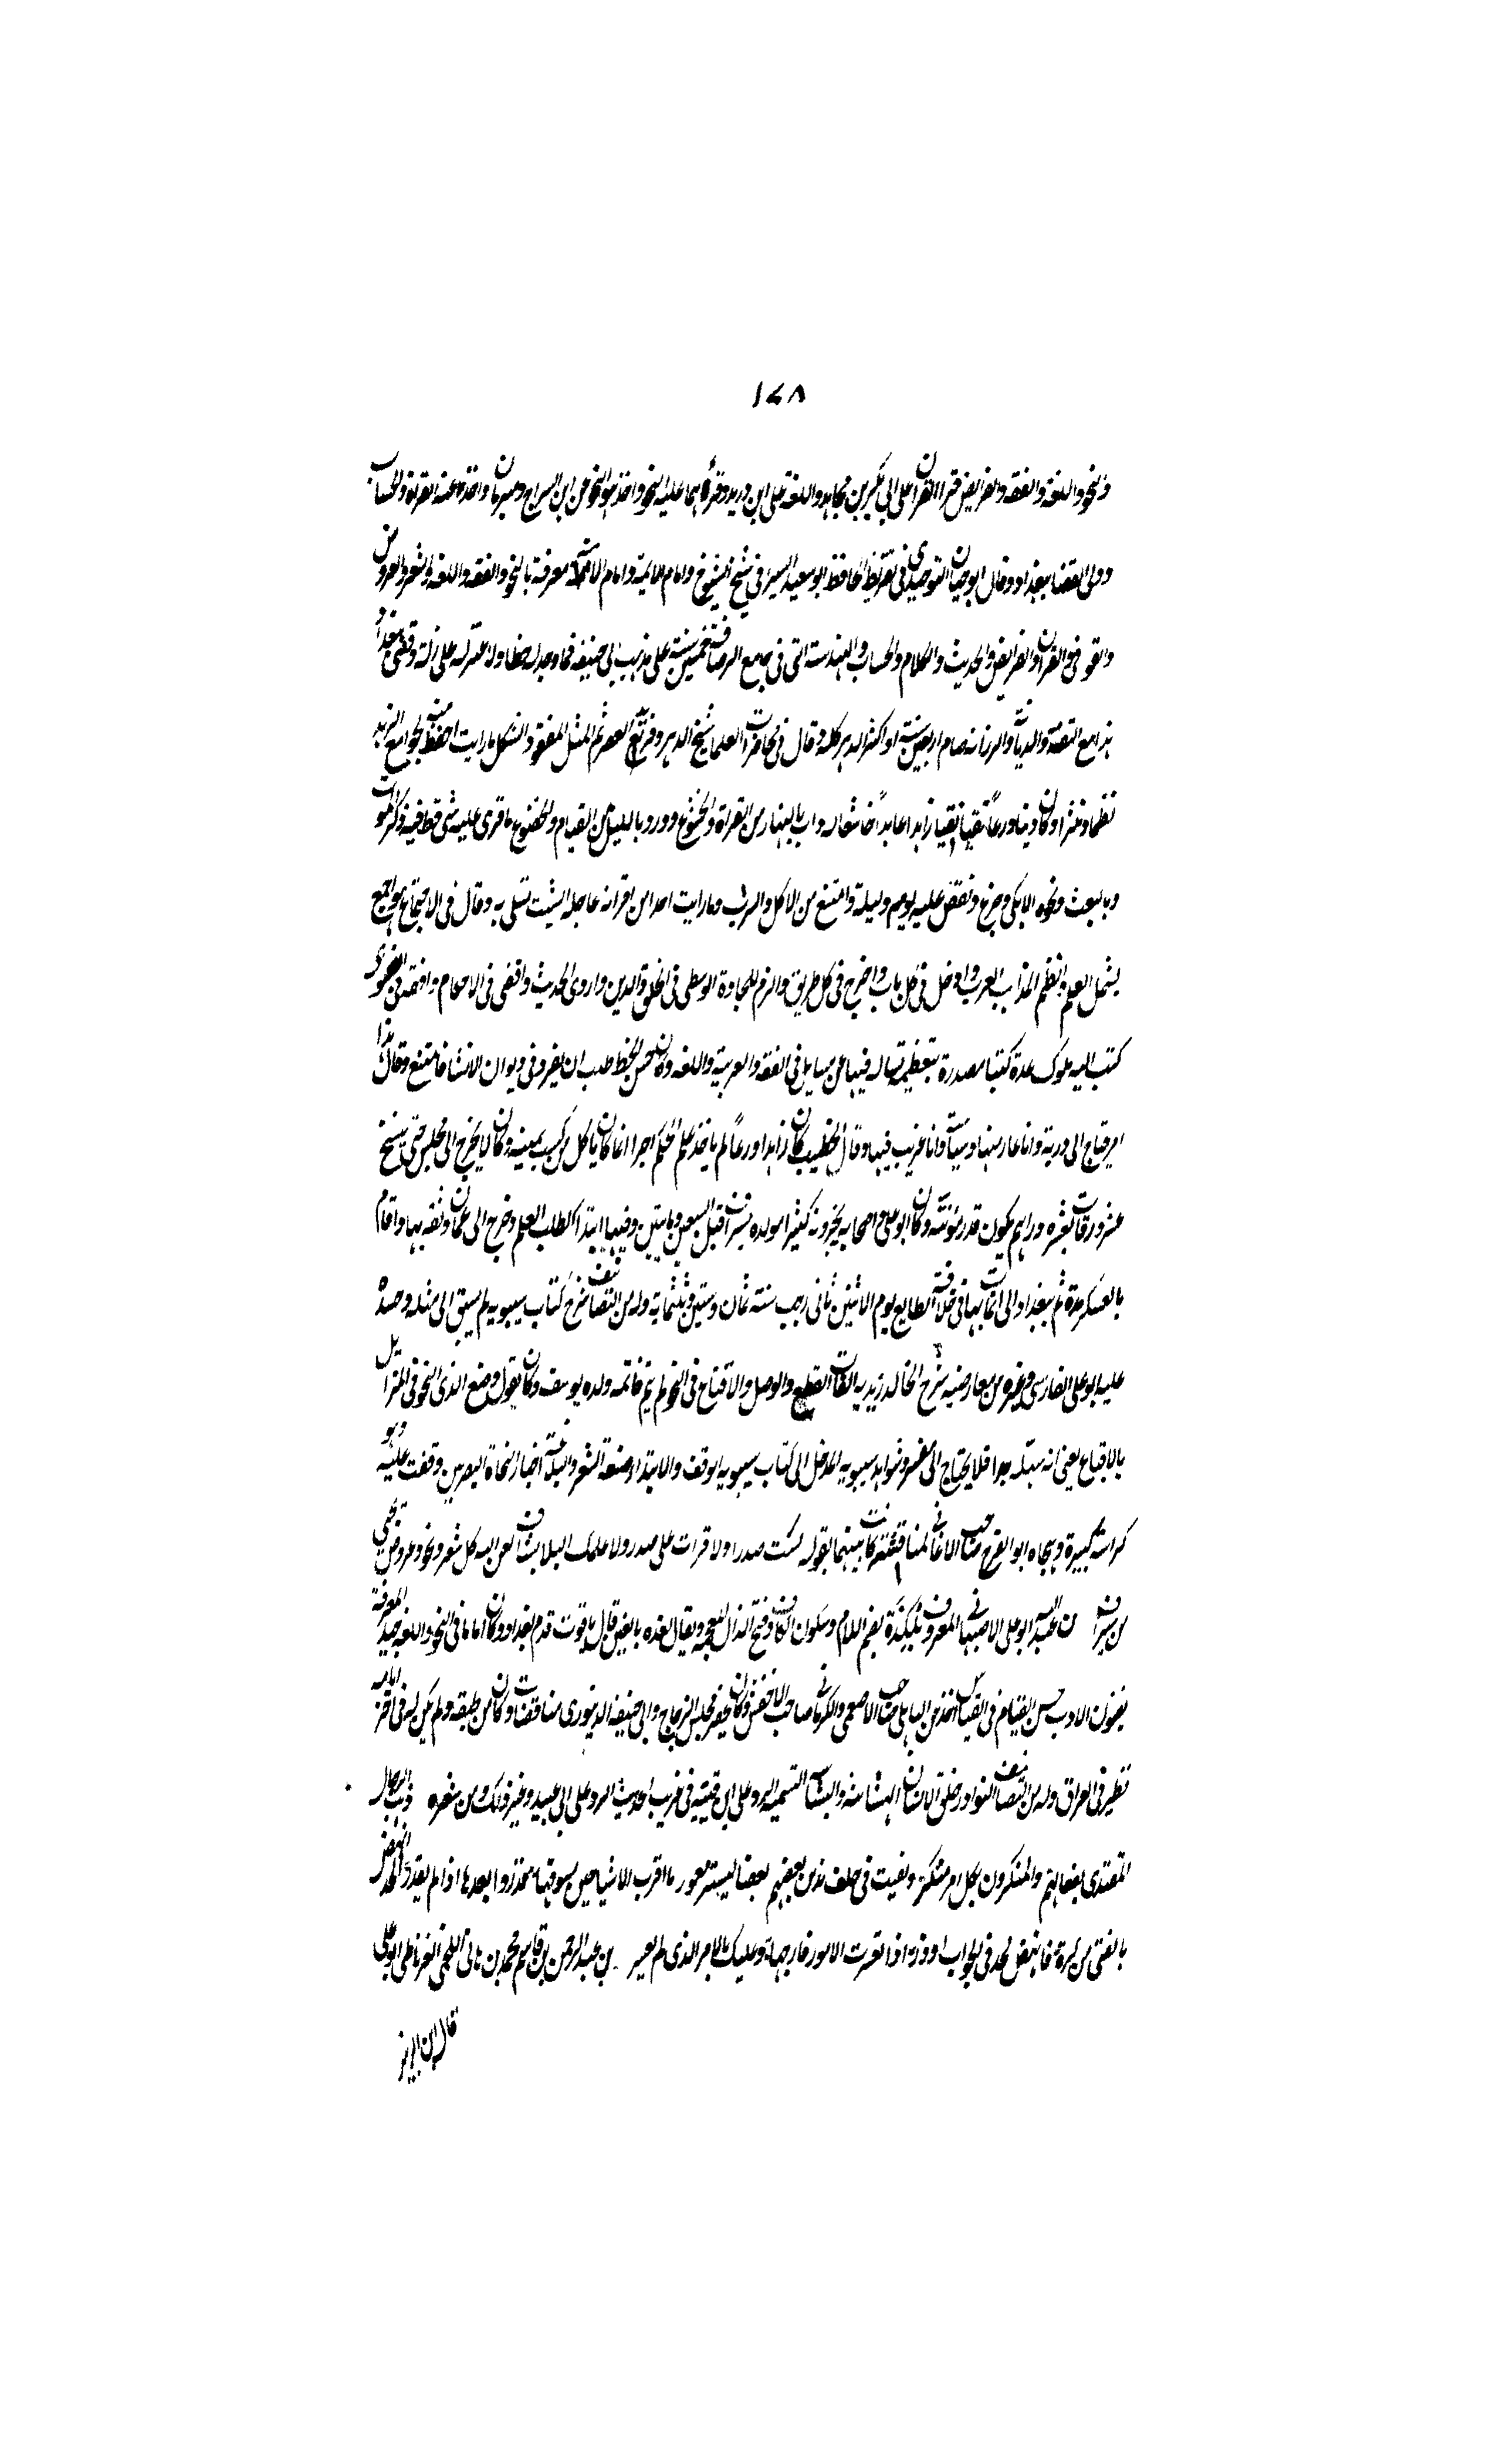 ١٤٨
والنحو واللغة والفقه والفرايض قرا القران على ابي بكر بن مجاهد واللغة على ابن دريد وقرءا هما عليه النحو واخذ هو النحو عن ابن السراج ومبرمان واخذا عنه القراة والحساب
وولى القضا ببغداد وقال ابو حيان التوحيدى فى تقريظ الحافظ ابو سعيد السيرافى شيخ الشيوخ وامام الايمة وامام الائمة معرفة بالنحو والفقه واللغة والشعر والعروض
والقوافى والقران والفرايض والحديث والكلام والحساب والهندسة افتى فى جامع الرصافة خمسين سنة على مذهب ابى حنيفة فما وجد له خطا ولا عثر له على زلة وقضى ببغداد
هذا مع الثقة والديانة والرزانة صام اربعين سنة او اكثر الدهر كله وقال فى محاضرات العلما شيخ الدهر وقريع العصر ثم المثل المفقود الشكل ما رايت احفظ منه لجوامع الزهد
نظما ونثرا وكان دينا ورعا تقيا نقيا زاهدا عابدا خاشعا له داب بالنهار من القراة والخشوع وورد بالليل من القيام والخضوع ما قرى عليه شى قط فيه ذكر الموت
وما بعث ونحوه الا بكى وجزع ونغص عليه يومه وليلة وامتنع من الاكل والشرب وما رايت احدا من اقرانه عاجله الشيب تسلى به وقال فى الامتاع هو اجمع
لشمل العلم وانظم لمذاهب العرب وادخل فى كل باب واخرج فى كل طريق والزم للجادة الوسطى فى الخلق والدين واروى الحديث واقضى فى الاحكام وافقه فى الفتوى
كتب اليه ملوك عدة كتبا مصدرة بتعظيمه تساله فيها عن مسايل فى الفقه والعربية واللغة وكان حسن الخط طلب ان يقرر فى ديوان الانشا فامتنع وقال هذا
امر يحتاج الى دربة وانا عار منها وسياسة وانا غريب فيها وقال الخطيب كان زاهدا ورعا لم ياخذ على الحكم اجرا انما كان ياكل من كسب يمينه وكان لا يخرج الى مجلس حتى ينسخ
عشر ورقات بعشرة دراهم يكون قدر مؤنته وكان ابو على واصحابه يحذرونه كثيرا مولده بسيراف قبل السبعين وماتين وفيها ابتدا لطلب العلم وخرج الى عمان وتفقه بها واقام
بالعسكر مدة ثم ببغداد الى ان مات بها فى خلافة الطايع يوم الاثنين ثانى رجب سنة ثمان وستين وثلثماية وله من التصانيف شرح كتاب سيبويه لم يسبق الى مثله وحسده
عليه ابو على الفارسى وغيره من معاصريه شرح الدريدية الفات القطع والوصل والاقناع فى النحو لم يتم فاتمه ولده يوسف وكان يقول وضع ابى النحو فى المزابل
بالاقناع يعنى انه سهله جدا فلا يحتاج الى مفسر شواهد سيبويه المدخل الى كتاب سيبويه الوقف والابتدا صنعة الشعر والبلاغة اخبار النحاة البصريين وقفت عليه وهو
كراسة كبيرة وهجاه ابو الفرج صاحب الاغانى لمنافسة كانت بينهما بقوله لست صدرا ولا قرات على صدر ولا علمك البكى بشاف لعن الله كل شعر ونحو وعروض يجى
من سيراف ن عبد الله ابو على الاصبهانى المعروف بلكذة بضم اللام وسكون الكاف وفتح الذال المعجمة ويقال لغذة بالغين قال ياقوت قدم بغداد وكان اماما فى النحو واللغة جيد المعرفة
بفنون الادب حسن القيام فى القياس اخذ عن الباهلى صاحب الاصمعى والكرمانى صاحب الاخفش وكان يحضر مجلس الزجاج وابى حنيفة الدينورى مناقضات وكان من طبقته ولم يكن له فى اخر ايامه
نظير فى العراق وله من التصانيف النوادر خلق الانسان الهشاشة والبشاشة التسمية الرد على ابن قتيبة فى غريب الحديث الرد على ابى عبيد وغير ذلك ومن شعره ذهب الرجال
المقتدى بفعالهم والمنكرون لكل امر منكر وبقيت فى خلف يزين بعضهم بعضا ليستر معور ما اقرب الاشيا حين يسوقها قدر وابعدها اذا لم يقدر الجد انهض
بالفتى من كده فانهض بجد فى الحوادث او ذر واذا تعسرت الامور فارجها وعليك بالامر الذى لم يعسر بن عبد الرحمن بن قاسم محمد بن هانى اللخمى الغرناطى ابو على
قال ابن الزبير